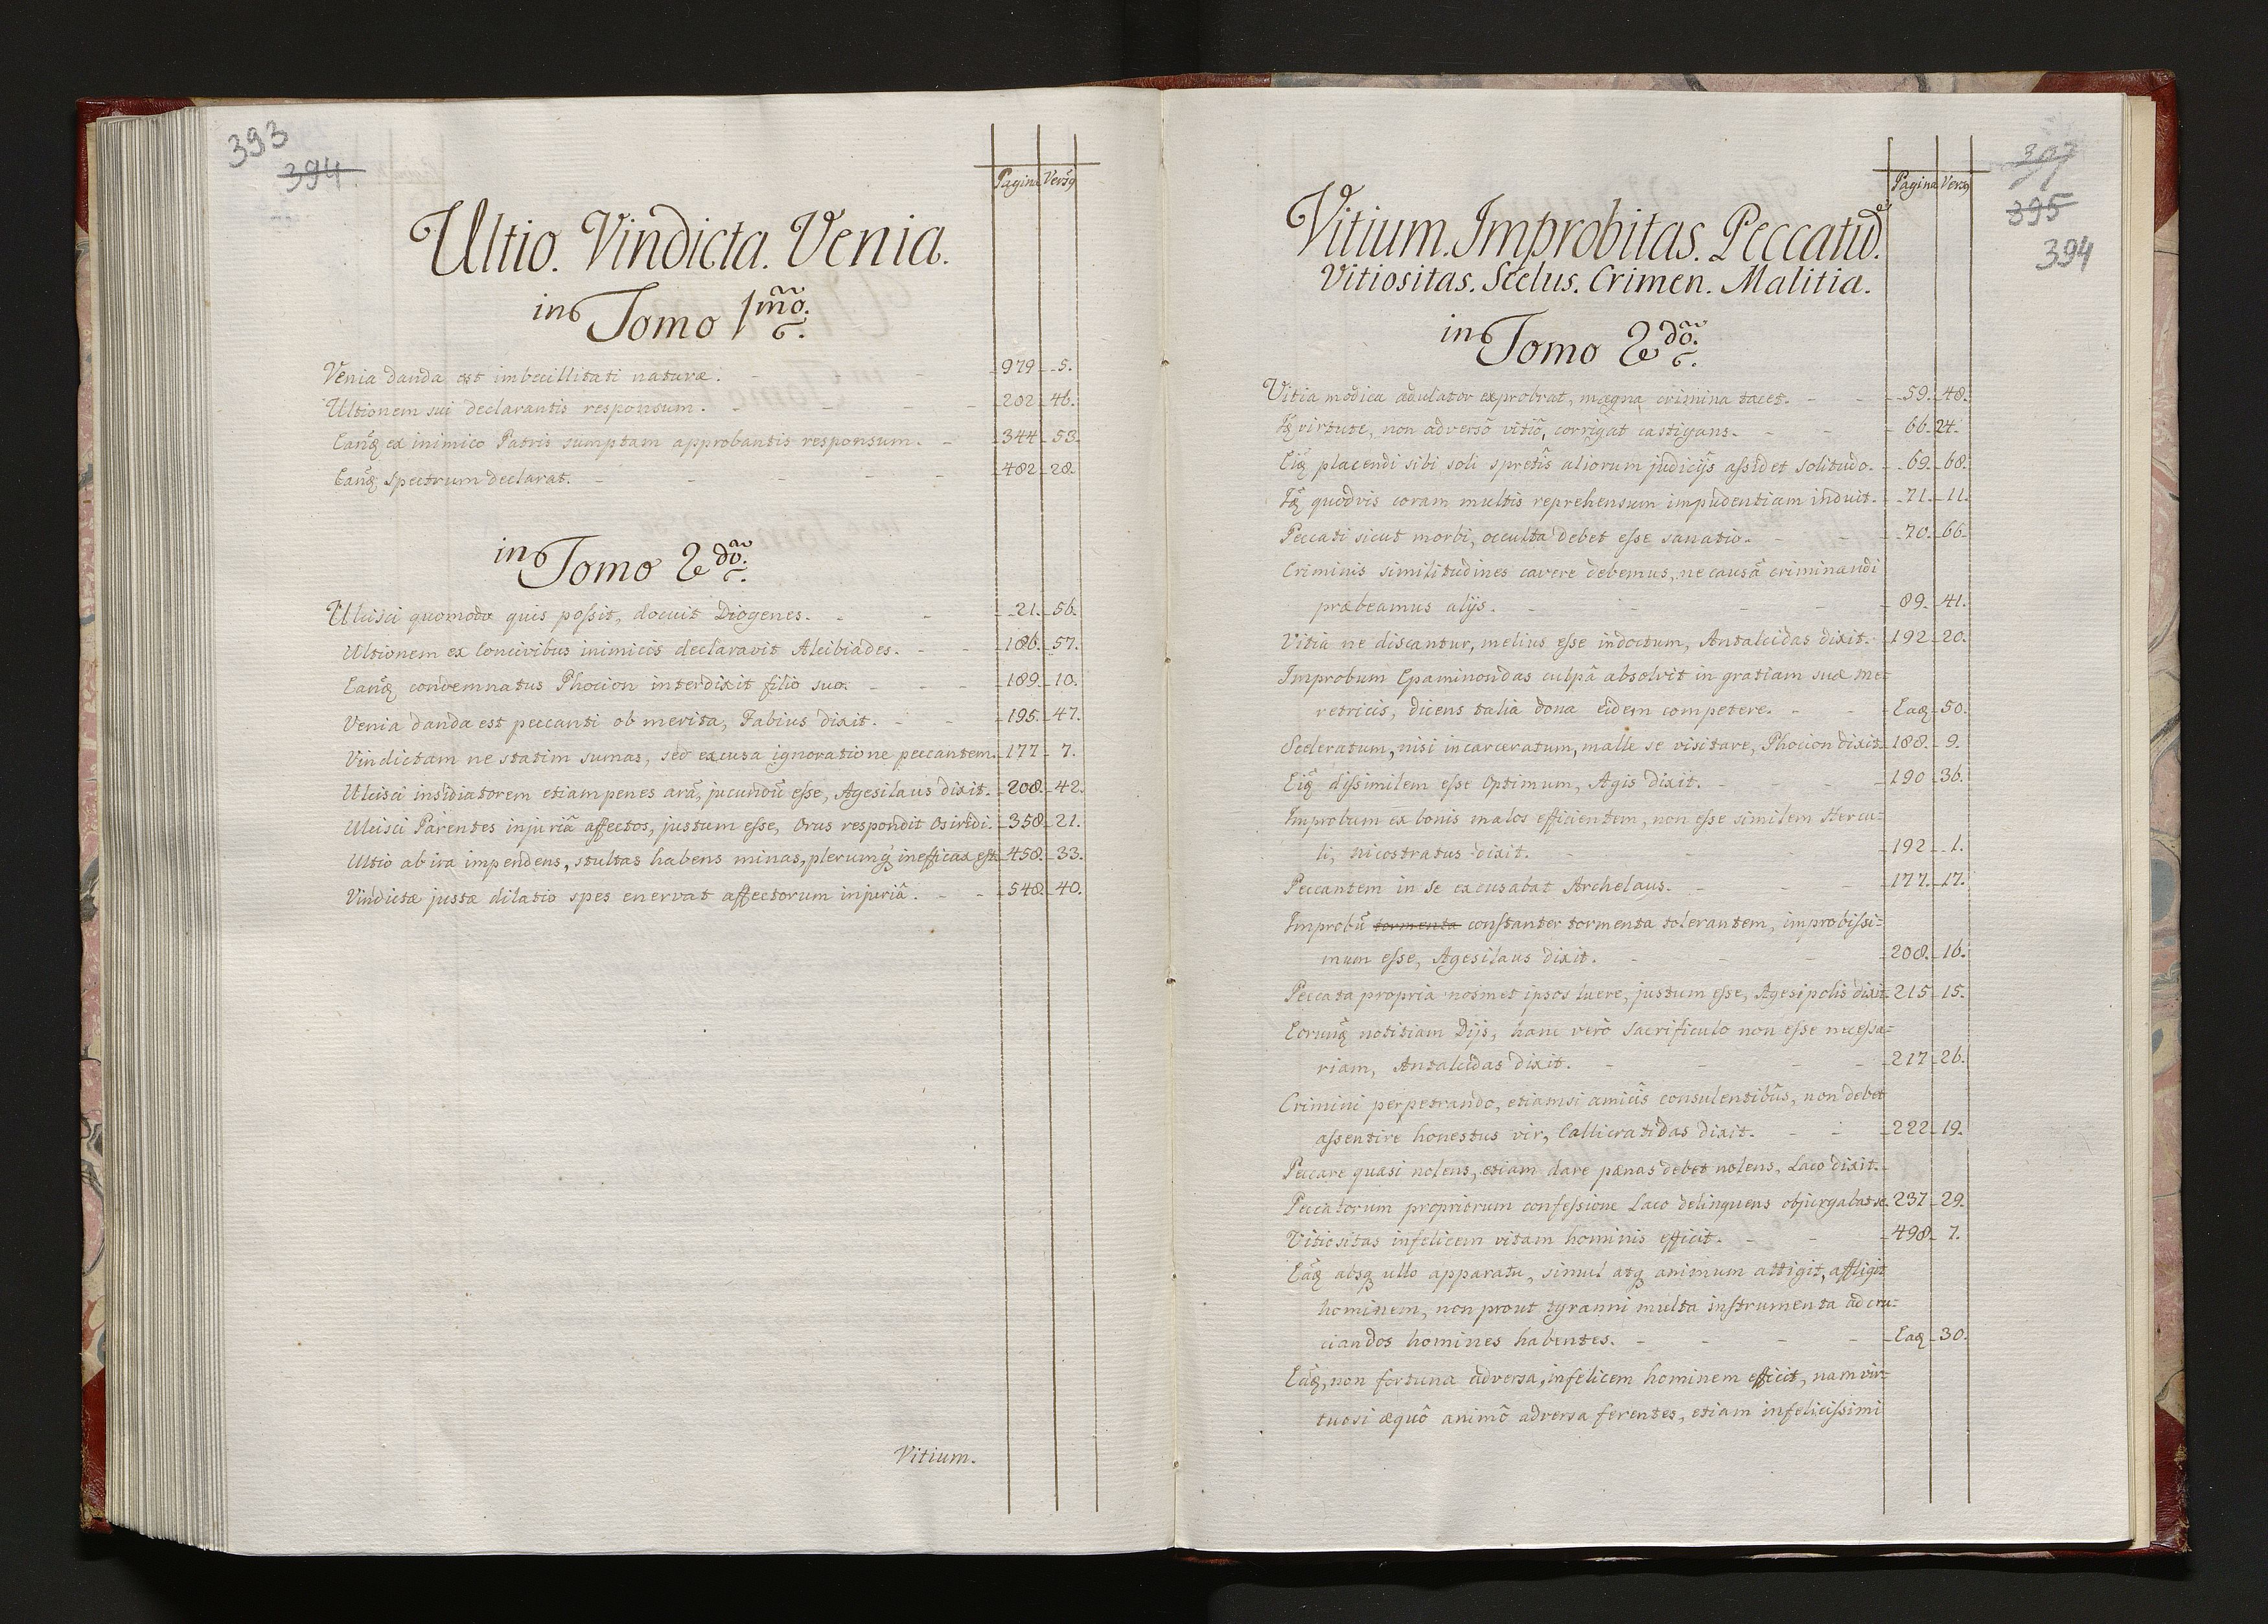 393
394.
Pagina Versq
Ultio. Vindicta. Venia.
in Tomo 1m̃o.
Venia danda est imbecillitati naturæ. 979 5.
Ultionem sui declarantis responsum. 202 46.
Eanq̃ ex inimico Patris sumptam approbantis responsum. 344 53.
Eanq̃ spectrum declarat. 482 28.
in Tomo 2dõ.
Ulcisci quomodo quis possit, docuit Diogenes. 21. 56.
Ultionem ex concivibus inimicis declaravit Alcibiades. 186. 57.
Eanq̃ condemnatus Phocion interdixit filio suo. 189. 10.
Venia danda est peccanti ob merita, Fabius dixit. 195. 47.
Vindictam ne statim sumas, sed excusa ignoratione peccantem. 177 7.
Ulcisci insidiatorem etiam penes arã, jucundũ esse, Agesilaus dixit. 208. 42.
Ulcisci Parentes injuriâ affectos, justum esse, Orus respondit Osiridi. 358. 21.
Ultio ab ira impendens, stultas habens minas, plerumq̃ inefficax est. 458. 33.
Vindictæ justæ dilatio spes enervat affectorum injuriâ. 548. 40.
Vitium.
397
395
394
Pagina Versq
Vitium. Improbitas. Peccatũ.
Vitiositas. Scelus. Crimen. Malitia.
in Tomo 2dõ.
Vitia modica adulator exprobrat, magna crimina tacet. 59. 48.
virtute, non adversô vitiô, corrigat castigans. 66. 24.
Eiq̃ placendi sibi soli spretis aliorum judicijs assidet solitudo. 69. 68.
quodvis coram multis reprehensum impudentiam induit. 71. 11.
Peccati sicut morbi, occulta debet esse sanatio. 70. 66.
Criminis similitudines cavere debemus, ne causã criminandi
præbeamus alijs. 89. 41.
Vitia ne discantur, melius esse indoctum, Antalcidas dixit. 192 20.
Improbum Epaminondas culpâ absolvit in gratiam suæ me-
retricis, dicens talia dona eidem competere. Eaq 50.
Sceleratum, nisi incarceratum, malle se visitare, Phocion dixit 188. 9.
Eiq̃ dissimilem esse Optimum, Agis dixit. 190 36.
Improbum ex bonis malos efficientem, non esse similem Hercu-
li, Nicostratus dixit. 192 1.
Peccantem in se excusabat Archelaus. 177. 17.
Improbũ tormenta constanter tormenta tolerantem, improbissi-
mum esse, Agesilaus dixit. 208. 16.
Peccata propria nosmet ipsos luere, justum esse, Agesipolis dixit 215 15.
Eorumq̃ notitiam Dijs, hanc verò Sacrificulo non esse necessa-
riam, Antalcidas dixit. 217 26.
Crimini perpetrando, etiamsi amicis consulentibus, non debet
assentire honestus vir, Callicratidas dixit. 222 19.
Peccare quasi nolens, etiam dare pænas debet nolens, Laco dixit.
Peccatorum propriorum confessione Laco delinquens objurgabat se. 237 29.
Vitiositas infelicem vitam hominis efficit. 498 7.
Eaq̃ absq ullo apparatu, simul atq animum attigit, affligit
hominem, non prout tyranni multa instrumenta ad cru-
ciandos homines habentes. Eaq 30.
Eaq̃, non fortuna adversa, infelicem hominem efficit, nam vir-
tuosi æquô animô adversa ferentes, etiam infelicissimi